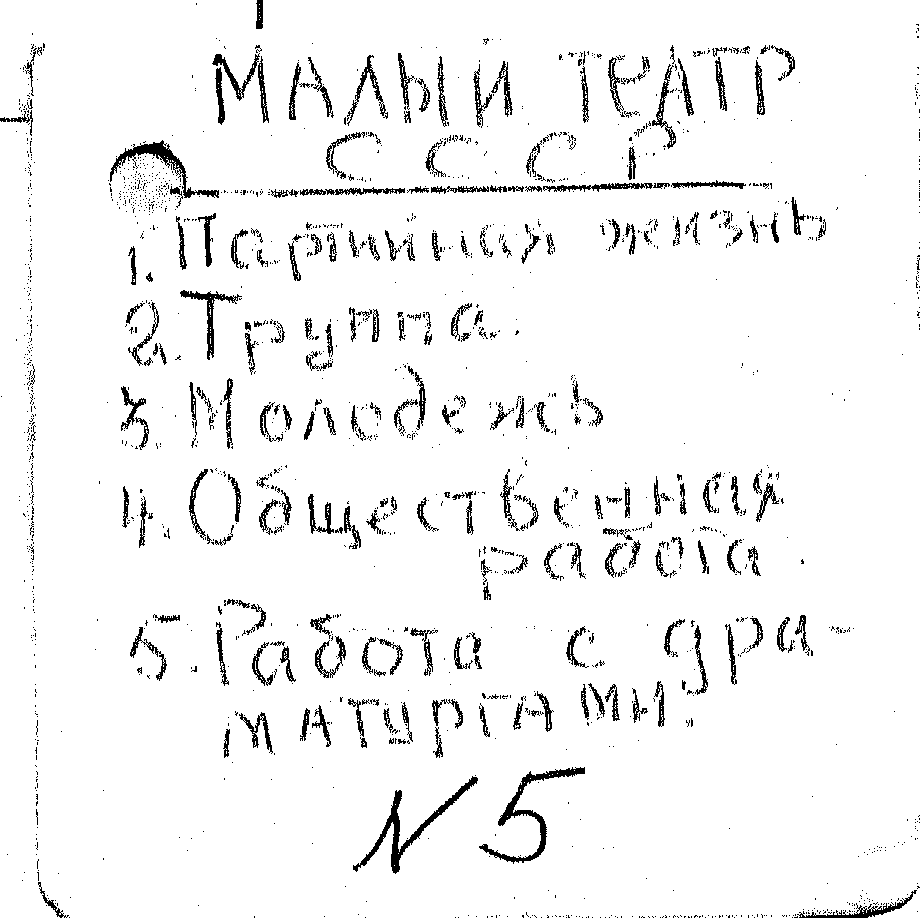 МАЛЫЙ ТЕАТР
СССР
1. Партийная жизнь
2. Труппа.
3. Молодежь
4. Общественная
работа.
5. Работа с дра-
матургами.
N 5